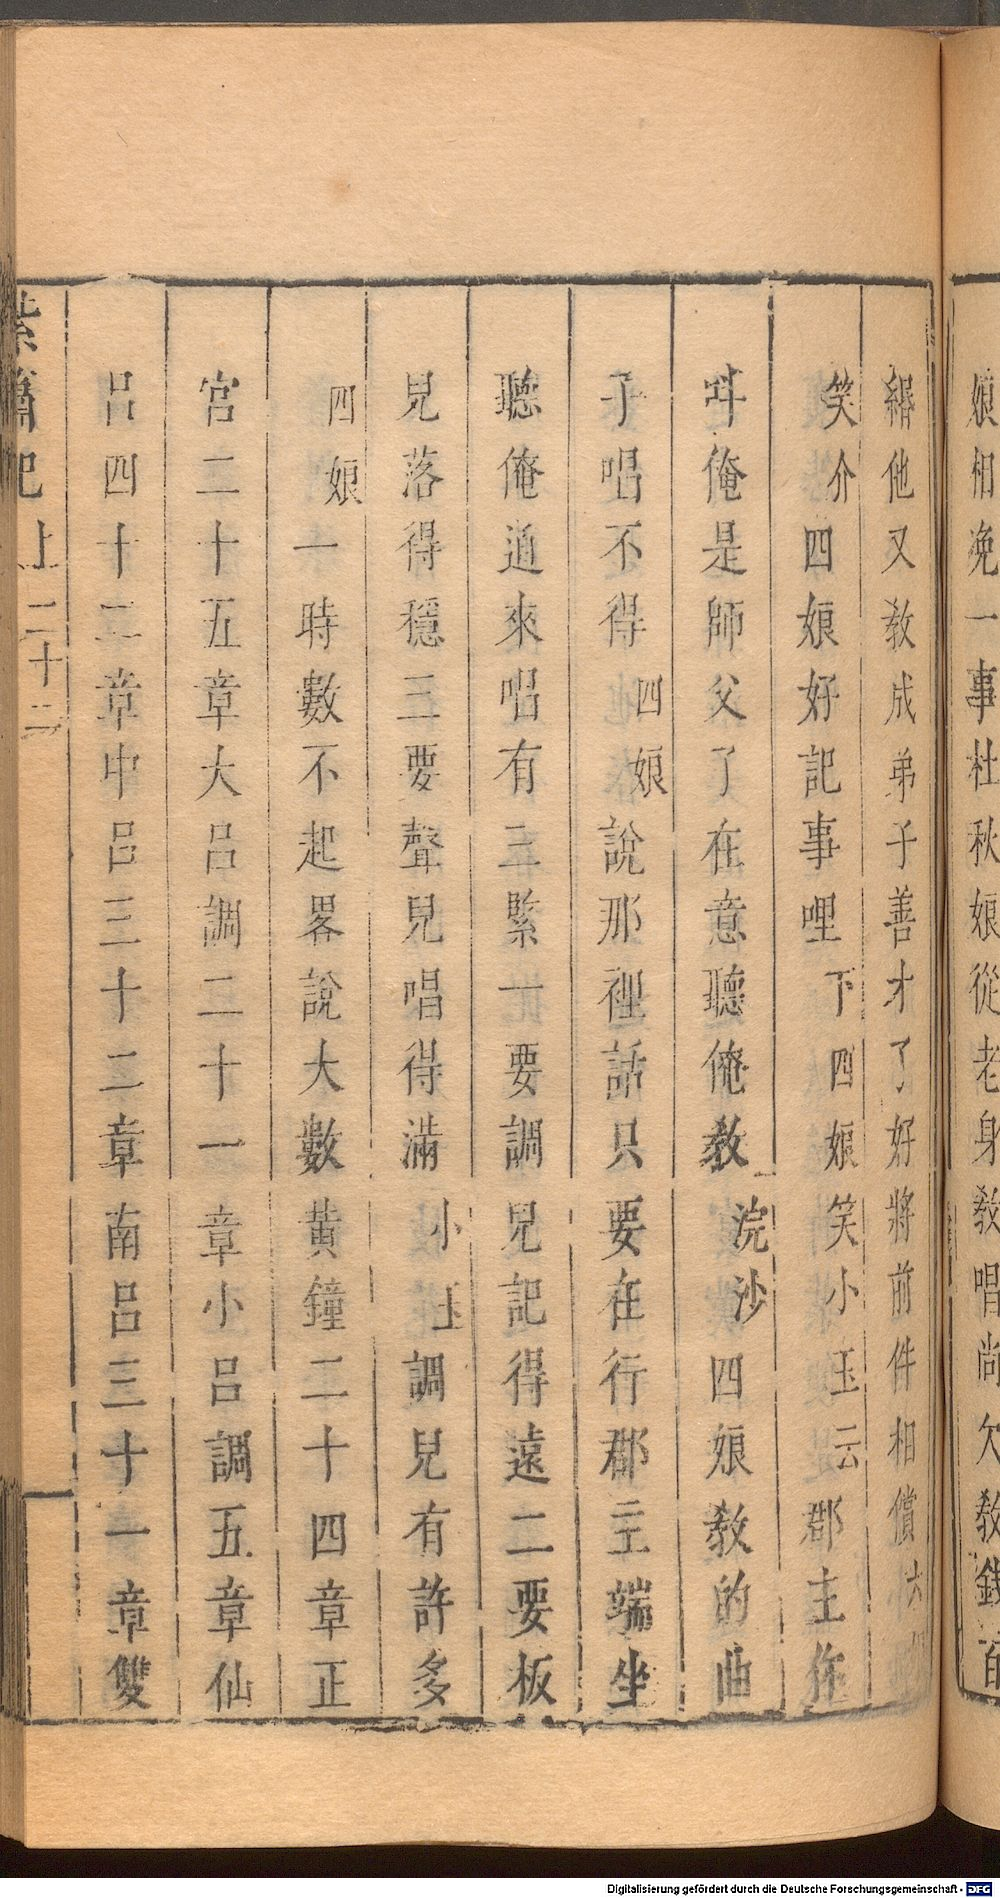 娘相浼一事杜秋娘從老身教唱尚欠教錢百
緡他又教成弟子善才了好將前件相償六
笑介四娘好記事哩下四娘笑小玉云郡主你
呌俺是師父了在意聽俺教浣沙四娘教的曲
子唱不得四娘說那裡話只要在行郡主端坐
聽俺道來唱有三緊一要調兒記得遠二要板
兒落得穩三要聲兒唱得滿小玉調兒有許多
四娘一時數不起畧說大數黃鐘二十四章正
宮二十五章大呂調二十一章小呂調五章仙
呂四十二章中呂三十二章南呂三十一章雙
紫簫記上二十二
Digitalisierung gefördert durch die Deutsche Forschungsgemeinschaft - DFG